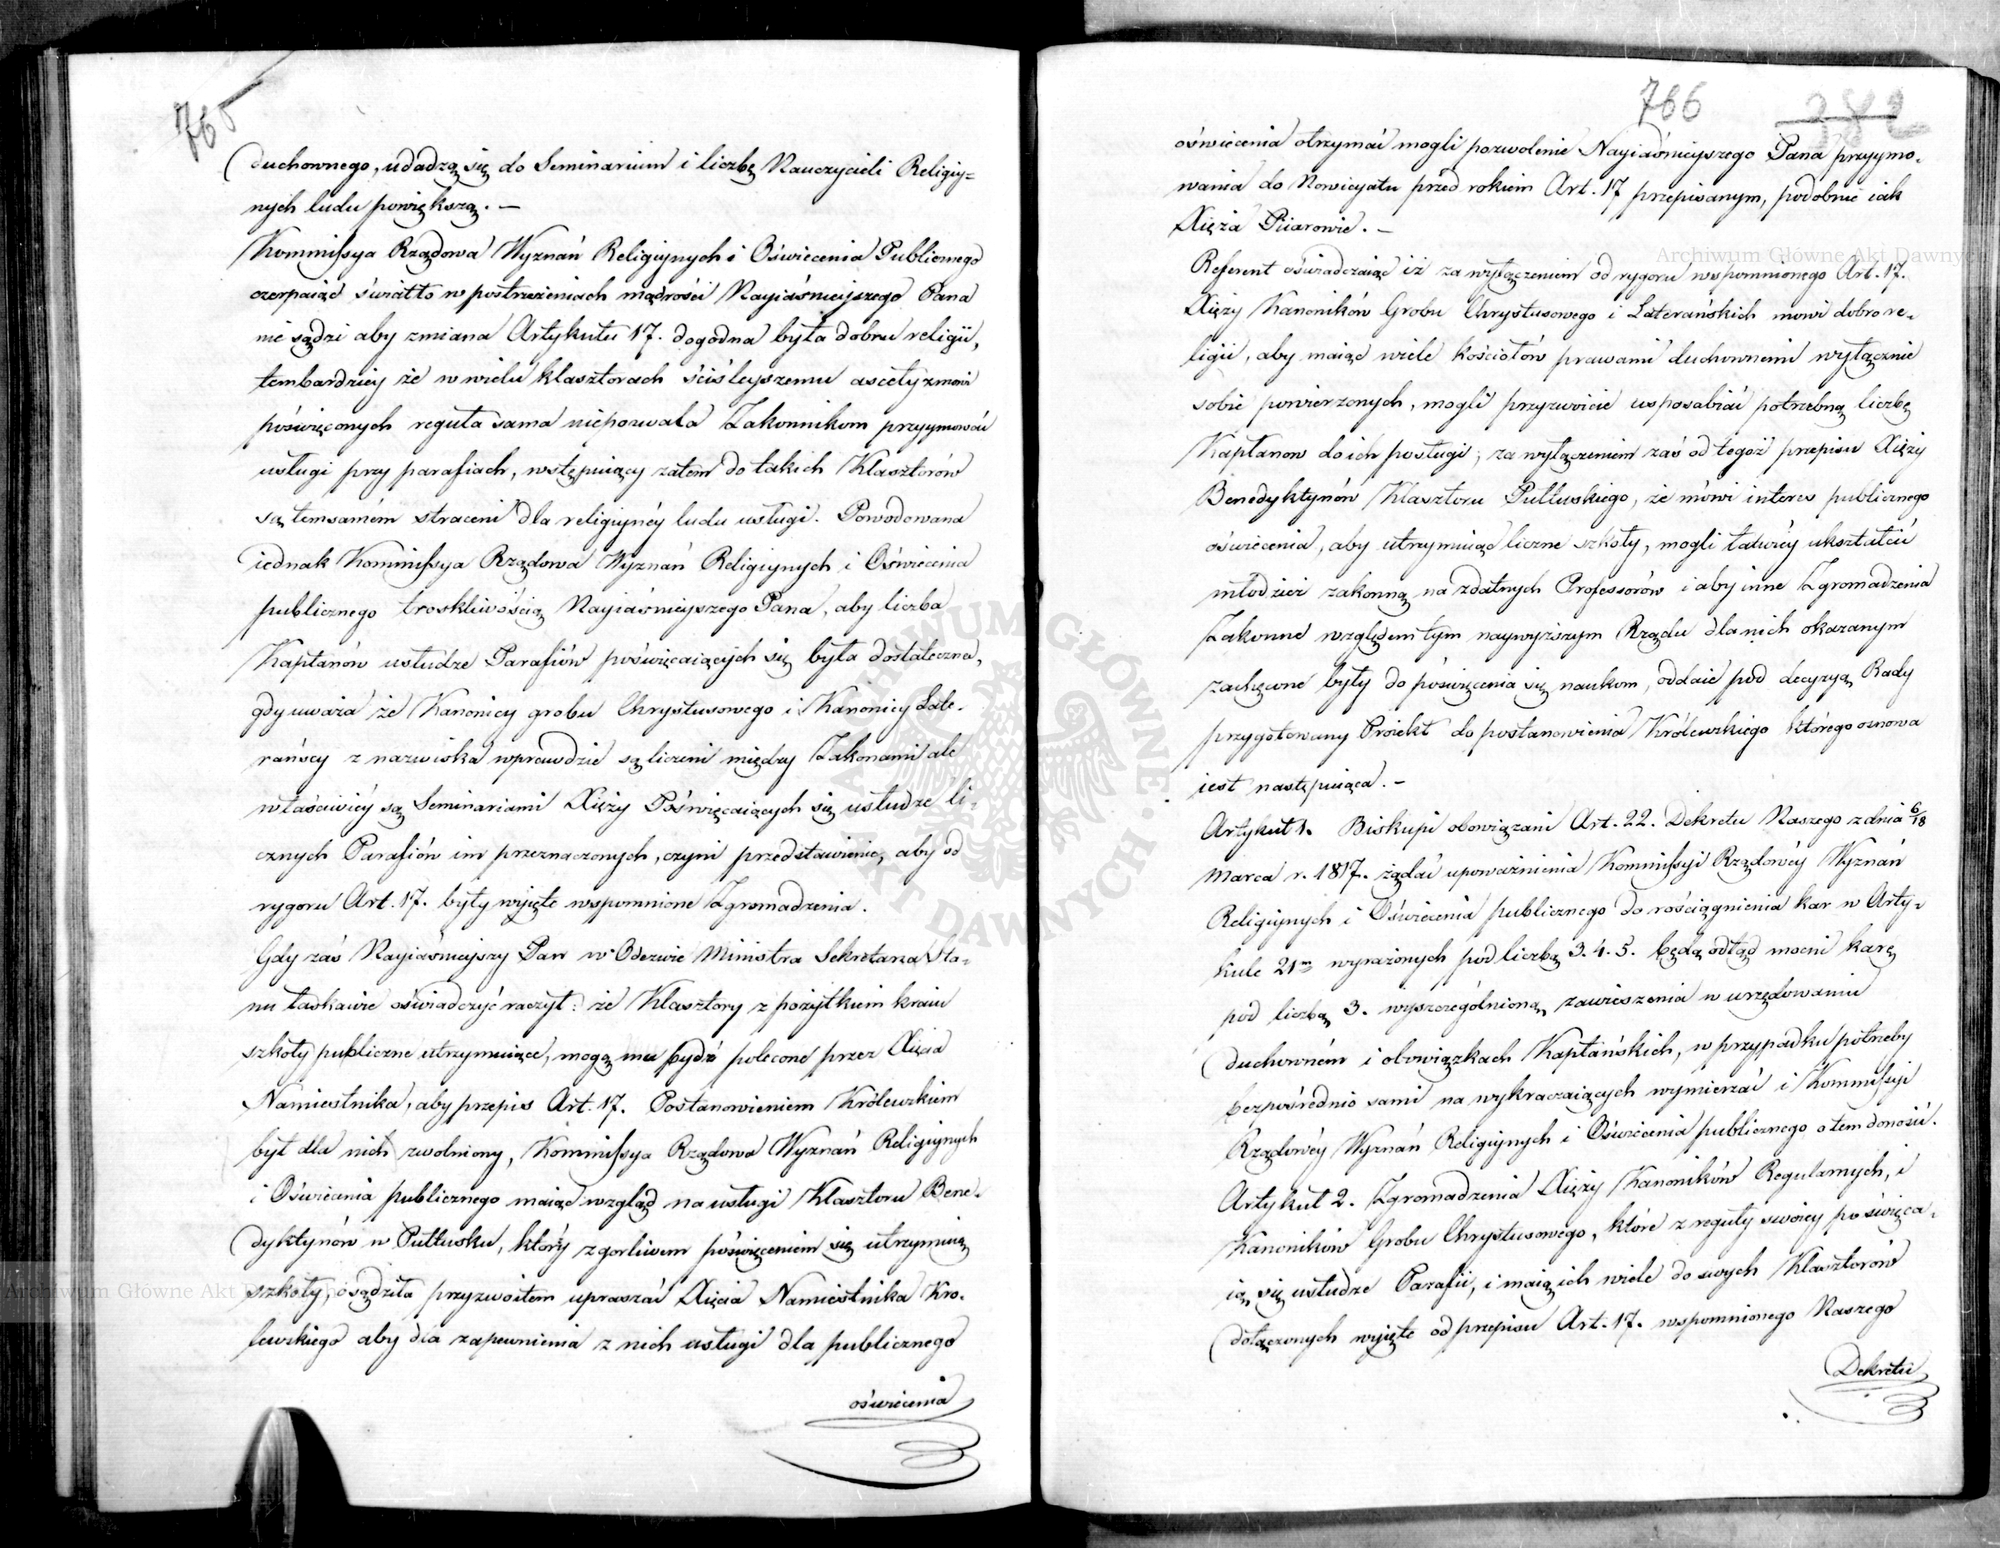 765
duchownego, udadzą się do Seminarium i liczbę Nauczycieli Religiy=
nych ludu powiększą. —
Kommissya Rządowa Wyznań Religiynych i Oświecenia Publicznego
czerpaiąc światło w postrzeżeniach mądrości Nayiaśnieyszego Pana
nie sądzi aby zmiana Artykułu 17. dogodna była dobru religii,
tembardziey że w wielu klasztorach ściśleyszemu ascetyzmowi
poświęconych reguła sama niepozwala Zakonnikom przyymować
usługi przy parafiach, wstępuiący zatem do takich Klasztorów
są temsamém straceni dla religiynéy ludu usługi. Powodowana
iednak Kommissya Rządowa Wyznań Religiynych i Oświecenia
publicznego troskliwością Nayiaśnieyszego Pana, aby liczba
Kapłanów usłudze Parafiów poświęcaiących się była dostateczna,
gdy uważa że Kanonicy grobu Chrystusowego i Kanonicy Late-
rańscy z nazwiska wprawdzie są liczeni między Zakonami ale
właściwiéy są Seminariami Xięży Poświęcaiących się usłudze li-
cznych Parafiów im przeznaczonych, czyni przedstawienie, aby od
rygoru Art. 17. były wyięte wspomnione Zgromadzenia.
Gdy zaś Nayiaśnieyszy Pan w Odezwie Ministra Sekretarza Sta-
nu łaskawie oświadczyć raczył: że Klasztory z pożytkiem kraiu
szkoły publiczne utrzymuiące, mogą mu bydź polecone przez Xięcia
Namiestnika, aby przepis Art. 17. Postanowieniem Królewskim
był dla nich zwolniony, Kommissya Rządowa Wyznań Religiynych
i Oświecenia publicznego maiąc wzgląd na usługi Klasztoru Bene-
dyktynów w Pułtusku, który z gorliwem poświęceniem się utrzymuią
szkoły, osądziła przyzwoitem upraszać Xięcia Namiestnika Kró-
lewskiego aby dla zapewnienia z nich usługi dla publicznego
oświecenia
766 382
oświecenia otrzymać mogli pozwolenie Nayiaśnieyszego Pana przyymo-
wania do Nowicyatu przed rokiem Art. 17 przepisanym, podobnie iak
Xięża Piiarowie. —
Referent oświadczaiąc iż za wyłączeniem od rygoru wspomnionego Art. 17.
Xięży Kanoników Grobu Chrystusowego i Laterańskich mówi dobro re-
ligii, aby maiąc wiele kościołów prawami duchownemi wyłącznie
sobie powierzonych, mogli przyzwoicie usposabiać potrzebną liczbę
Kapłanow do ich posługi; za wyłączeniem zaś od tegoż przepisu Xięży
Benedyktynów Klasztoru Pułtuskiego, że mówi interes publicznego
oświecenia, aby utrzymuiąc liczne szkoły, mogli łatwiéy ukształcić
młodzież zakonną na zdatnych Professorów i aby inne Zgromadzenia
Zakonne względem tym naywyższym Rządu dla nich okazanym
zachęcone były do poświęcenia się naukom, oddaie pod decyzyą Rady
przygotowany Proiekt do postanowienia Królewskiego którego osnowa
iest następuiąca. —
Artykuł 1. Biskupi obowiązani Art. 22. Dekretu Naszego z dnia 6/18
Marca r. 1817. żądać upoważnienia Kommissyi Rządowéy Wyznań
Religiynych i Oświecenia publicznego do rościągnienia kar w Arty-
kule 21m wyrażonych pod liczbą 3. 4. 5. będą odtąd mocni karę
pod liczbą 3. wyszczególnioną, zawieszenia w urzędowaniu
duchowném i obowiązkach Kapłańskich, w przypadku potrzeby
bezpośrednio sami na wykraczaiących wymierzać i Kommissyi
Rządowéy Wyznań Religiynych i Oświecenia publicznego o tem donosić.
Artykuł 2. Zgromadzenia Xięży Kanoników Regularnych, i
Kanoników Grobu Chrystusowego, które z reguły swoiey poświęca-
ią się usłudze Parafii, i maią ich wiele do swych Klasztorów
dołączonych wyięte od przepisu Art. 17. wspomnionego Naszego
Dekretu
Archiwum Główne Akt Dawnych
Archiwum Główne Akt D
ARCHIWUM GŁÓWNE AKT DAWNYCH · GŁÓWNE